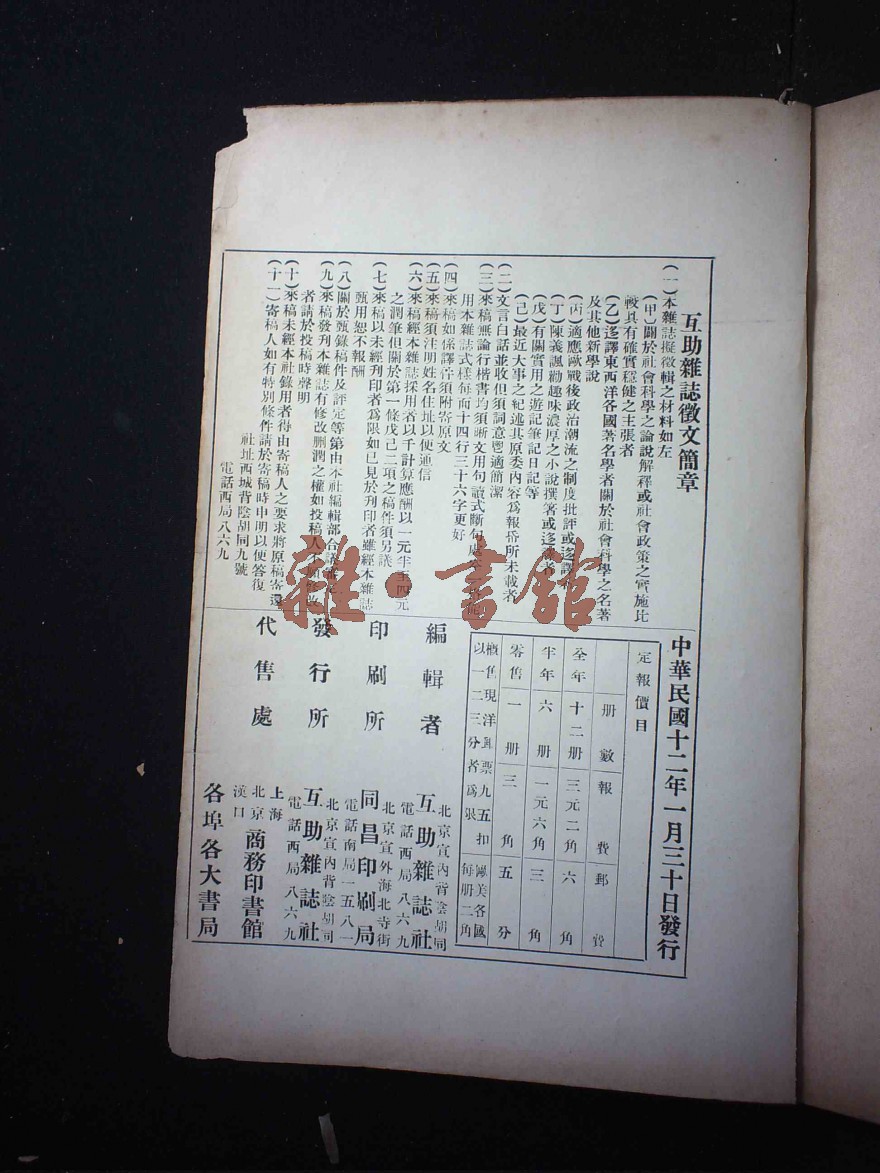 互助雜誌徵文簡章
(一)本雜誌擬徵輯之材料如左
(甲)關於社會科學之論說解釋或社會政策之實施比
較具有確實穩健之主張者
(乙)迻譯東西洋各國著名學者關於社會科學之名著
及其他新學說
(丙)適應歐戰後政治潮流之制度批評或迻譯
(丁)陳義諷勸趣味濃厚之小說撰著或迻譯者
(戊)有關實用之遊記筆記日記等
(己)最近大事之紀述其原委內容為報章所未載者
(二)文言白話並收但須詞意鬯適簡潔
(三)來稿無論行楷書均須晰文用句讀式斷句
用本雜誌式樣每面十四行三十六字更好
(四)來稿如係譯件須附寄原文
(五)來稿須注明姓名住址以便通信
(六)來稿經本雜誌採用者以千計算應酬以一元半至四元
之潤筆但關於第一條戊己二項之稿件須另議
(七)來稿以未經刊印者為限如已見於刊印者雖經本雜誌
甄用恕不報酬
(八)關於甄錄稿件及評定等第由本社編輯部合議
(九)來稿發刊本雜誌有修改刪潤之權如投稿人不願修改
者請於投稿時聲明
(十)來稿未經本社錄用者得由寄稿人之要求將原稿寄還
(十一)寄稿人如有特別條件請於寄稿時申明以便答復
社址西城背陰胡同九號
電話西局八六九
中華民國十二年一月三十日發行
定報價目
册數 報費 郵費
全年 十二册 三元二角 六角
半年 六册 一元六角 三角
零售 一册 三角 五分
概售現洋郵票九五扣
以一二三分者為限
歐美各國
每册二角
編輯者
北京宣內背陰胡同
互助雜誌社
電話西局八六九
印刷所
北京宣外海北寺街
同昌印刷局
電話南局一五八一
發行所
北京宣內背陰胡同
互助雜誌社
電話西局八六九
代售處
上海
北京 商務印書館
漢口
各埠各大書局
雜·書館